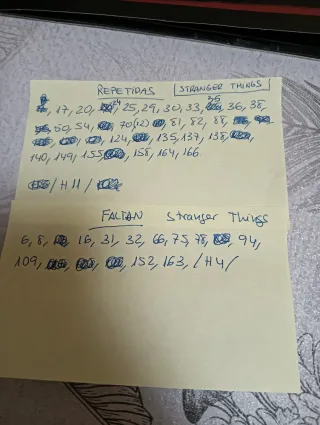 REPETIDAS STRANGER THINGS
17, 20, 24, 25, 29, 30, 33, 35, 36, 38,
50, 54, 70(12), 81, 82, 88,
124, 135, 137, 138,
140, 149, 155, 158, 164, 166.
/ H11 /
FALTAN Stranger Things
6, 8, 16, 31, 32, 66, 75, 78, 94,
109, 152, 163, /H4/